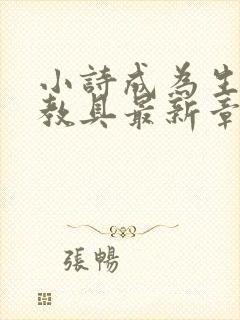 小詩成為生
教具最新章
張暢